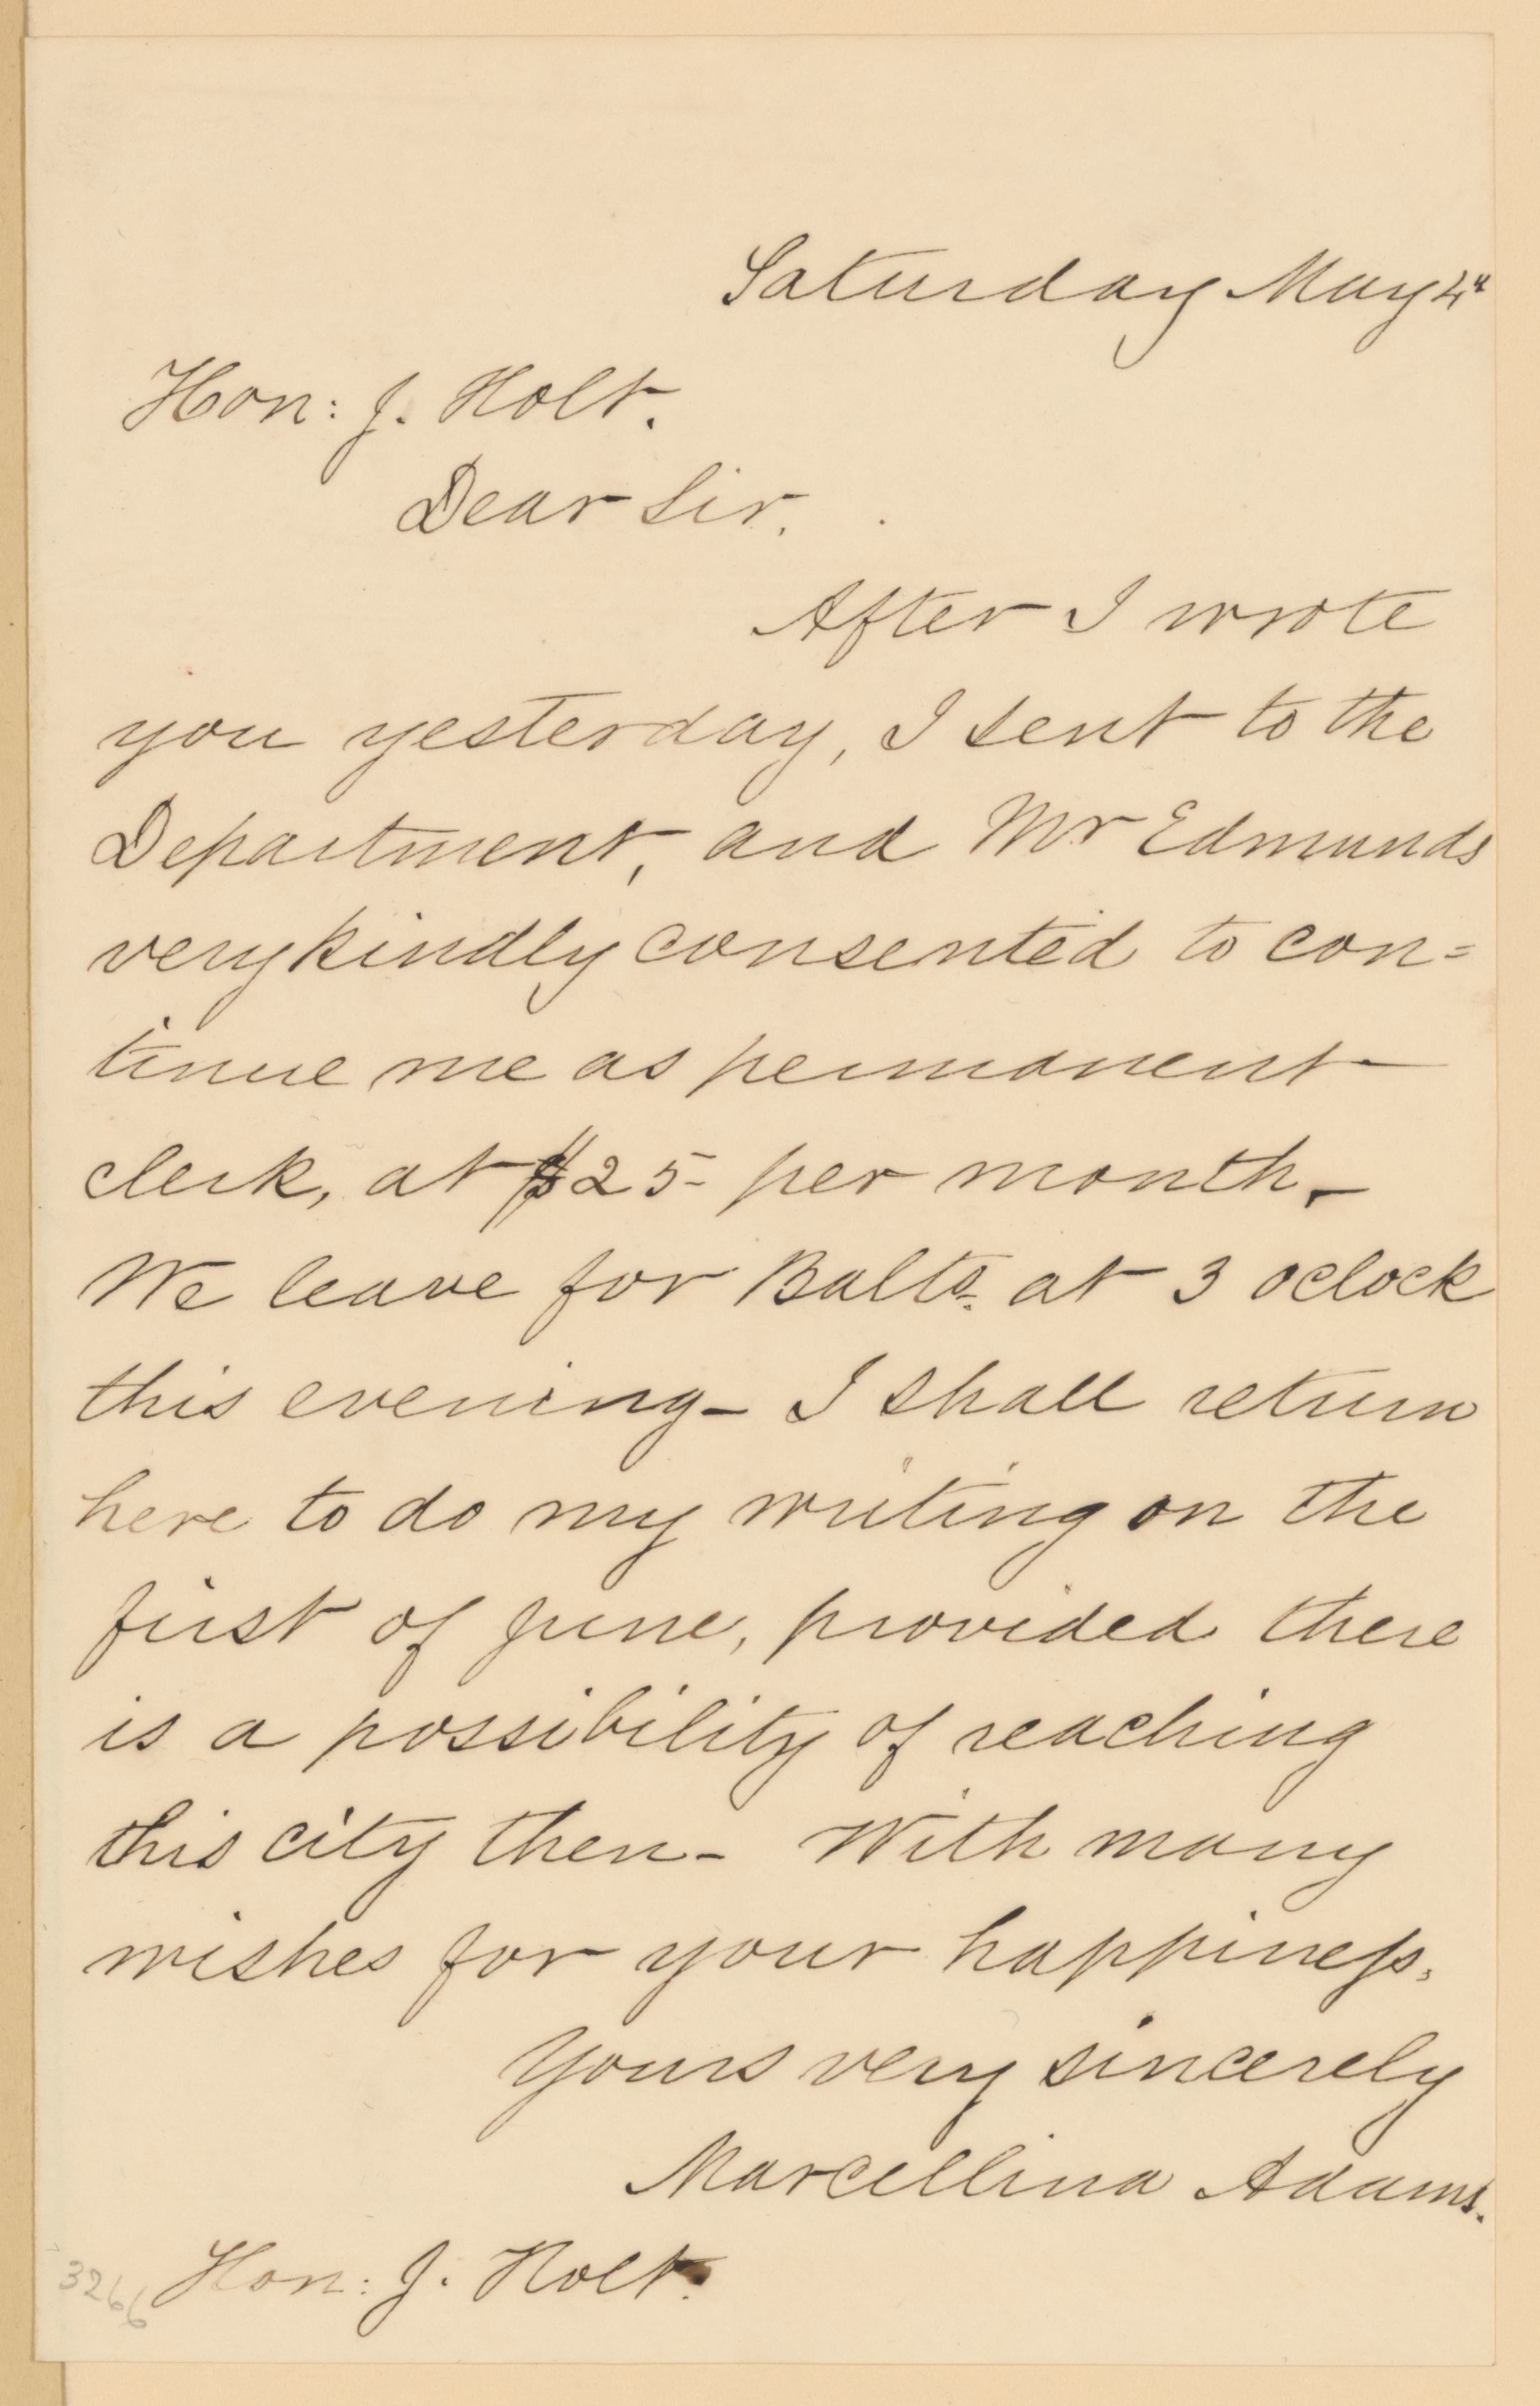 Saturday May 4th
Hon: J. Holt.
Dear Sir.
After I wrote
you yesterday, I sent to the
Department, and Mr Edmunds
very kindly consented to con=
tinue me as permanent
clerk, at $25 per month.
We leave for Balto. at 3 oclock
this evening - I shall return
here to do my writing on the
first of June, provided there
is a possibility of reaching
this city then - With many
wishes for your happiness.
Yours very sincerely
Marcellina Adams.
Hon: J. Holt.
3266